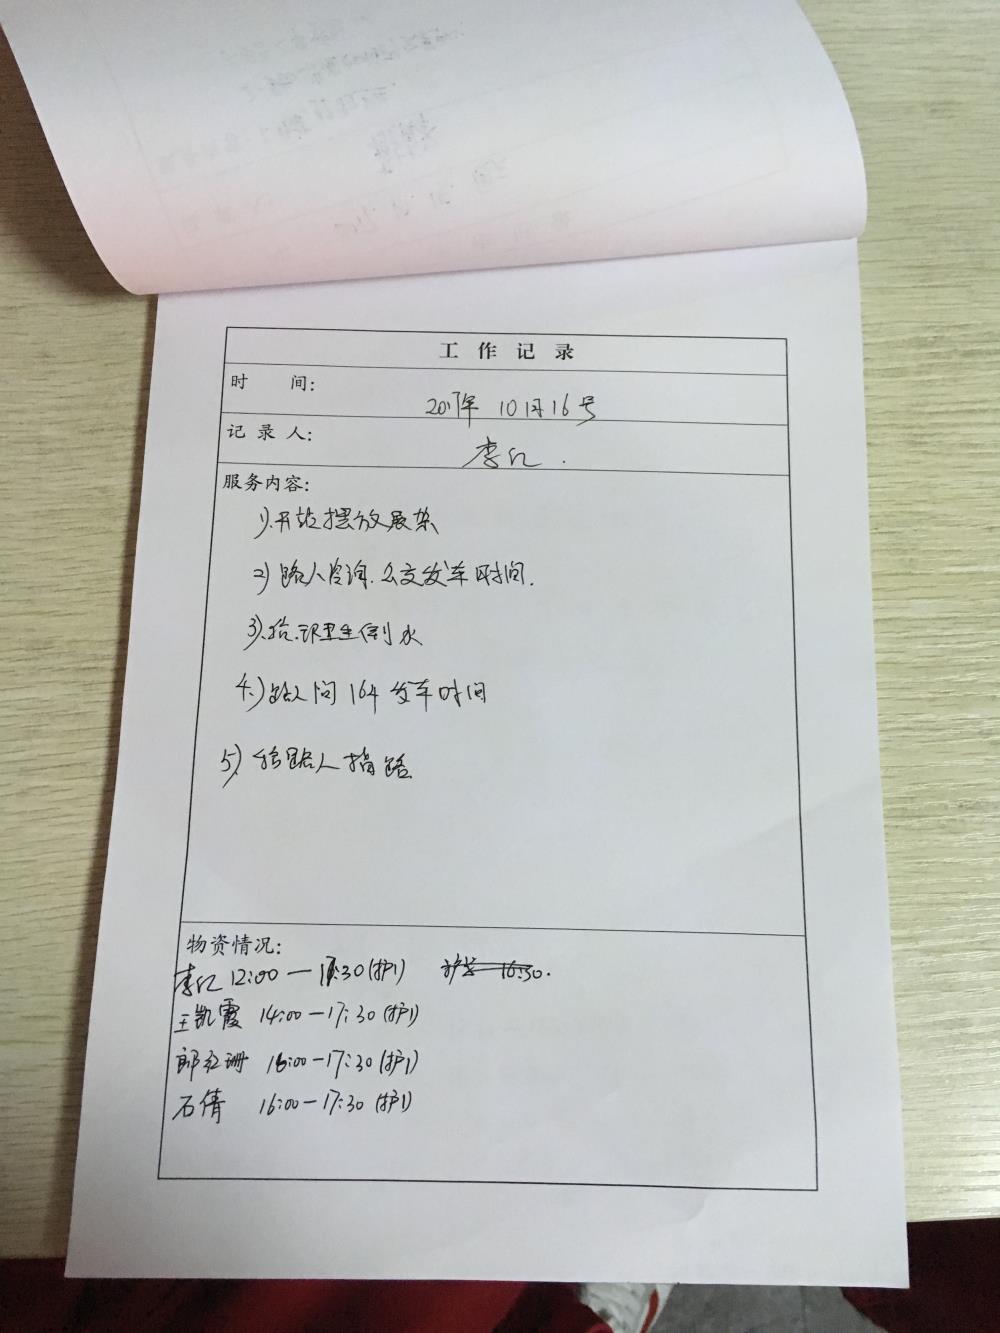 工作记录
时 间：
2017年 10月16号
记录人：
李红.
服务内容：
1).开站摆放展架
2) 路人咨询.公交发车时间.
3).给环卫生倒水
4.)路人问 164 发车时间
5).给路人指路
物资情况：
李红 12:00—17:30(护1) 16:30.
王凯霞 14:00—17:30(护1)
郎红珊 16:00—17:30(护1)
石倩 16:00—17:30(护1)